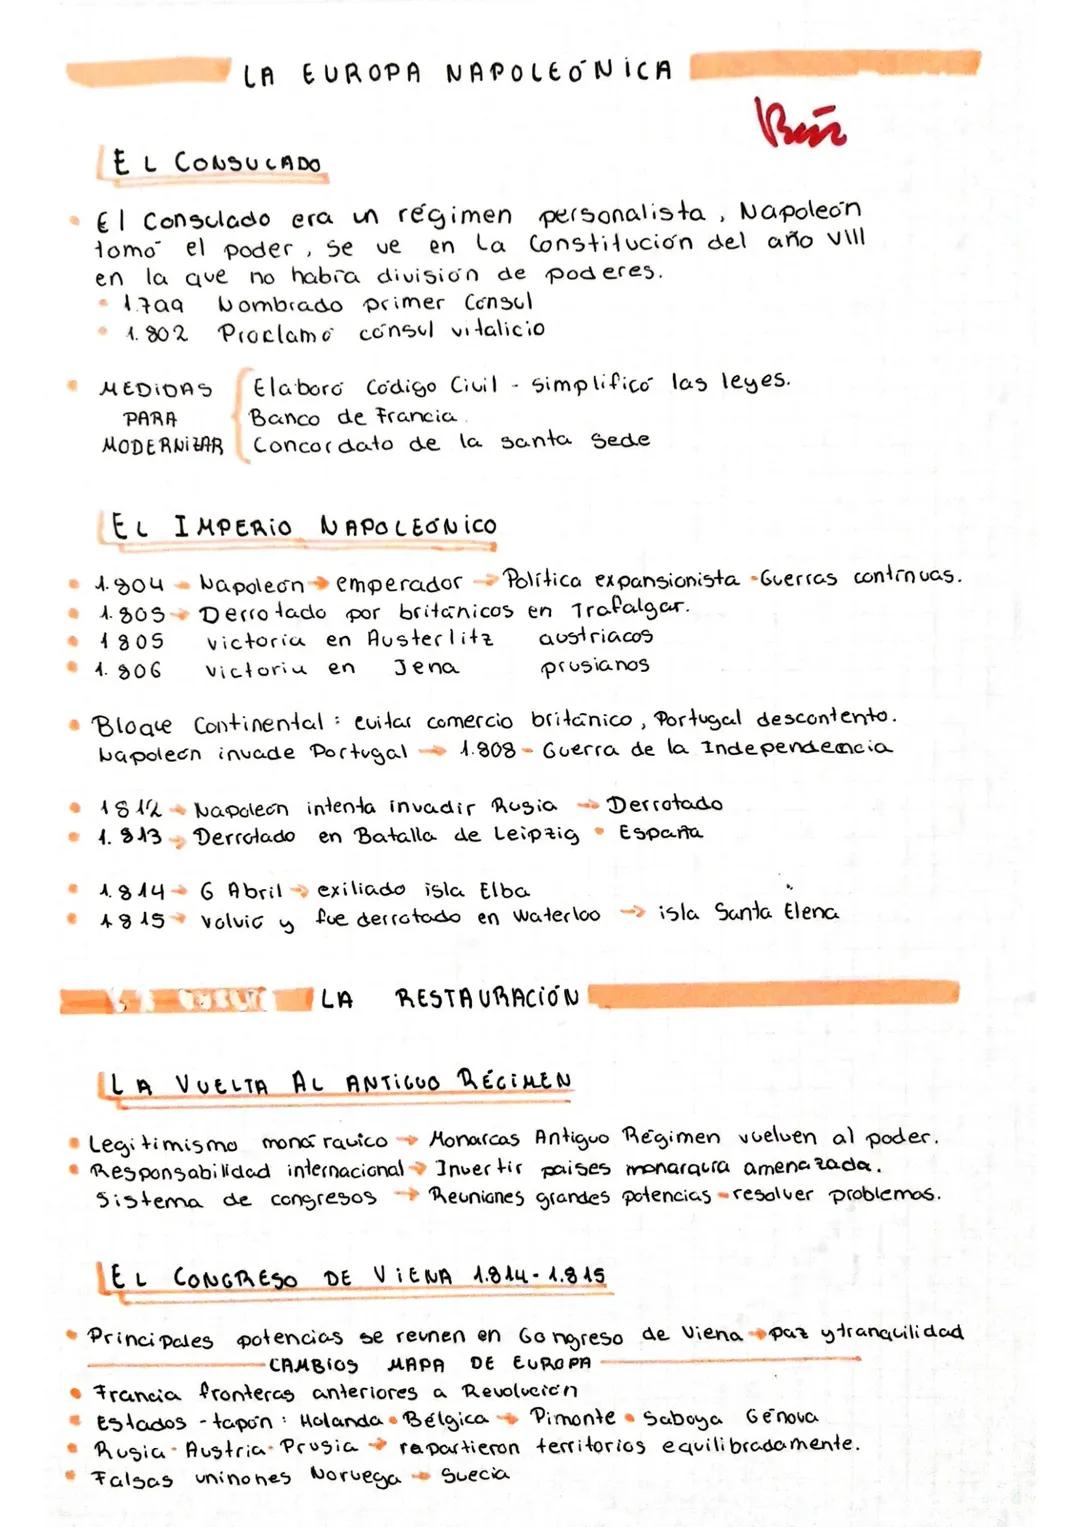 LA EUROPA NAPOLEÓNICA
Bien
EL CONSULADO
El Consulado era un régimen personalista, Napoleón
tomó el poder, se ve en la Constitución del año VIII
en la que no había división de poderes.
1.799 Nombrado primer Cónsul
1.802 Proclamó cónsul vitalicio
MEDIDAS PARA MODERNIZAR
Elaboró Código Civil - simplificó las leyes.
Banco de Francia.
Concordato de la santa Sede
EL IMPERIO NAPOLEÓNICO
1.804 → Napoleón → emperador → Política expansionista · Guerras contínuas.
1.805 → Derrotado por británicos en Trafalgar.
1805 victoria en Austerlitz austriacos
1.806 victoria en Jena prusianos
Bloque Continental: evitar comercio británico, Portugal descontento.
Napoleón invade Portugal → 1.808 - Guerra de la Independencia
1812 → Napoleón intenta invadir Rusia → Derrotado
1.813 → Derrotado en Batalla de Leipzig · España
1.814 → 6 Abril → exiliado isla Elba
1815 → volvió y fue derrotado en Waterloo → isla Santa Elena
LA RESTAURACIÓN
LA VUELTA AL ANTIGUO RÉGIMEN
Legitimismo monárquico → Monarcas Antiguo Régimen vuelven al poder.
Responsabilidad internacional → Invertir paises monarquia amenazada.
Sistema de congresos → Reuniones grandes potencias - resolver problemas.
EL CONGRESO DE VIENA 1.814-1.815
Principales potencias se reunen en Congreso de Viena → paz y tranquilidad
CAMBIOS MAPA DE EUROPA
Francia fronteras anteriores a Revolución
Estados - tapón: Holanda · Bélgica → Pimonte · Saboya Génova
Rusia · Austria · Prusia → repartieron territorios equilibradamente.
Falsas uninones Noruega → Suecia